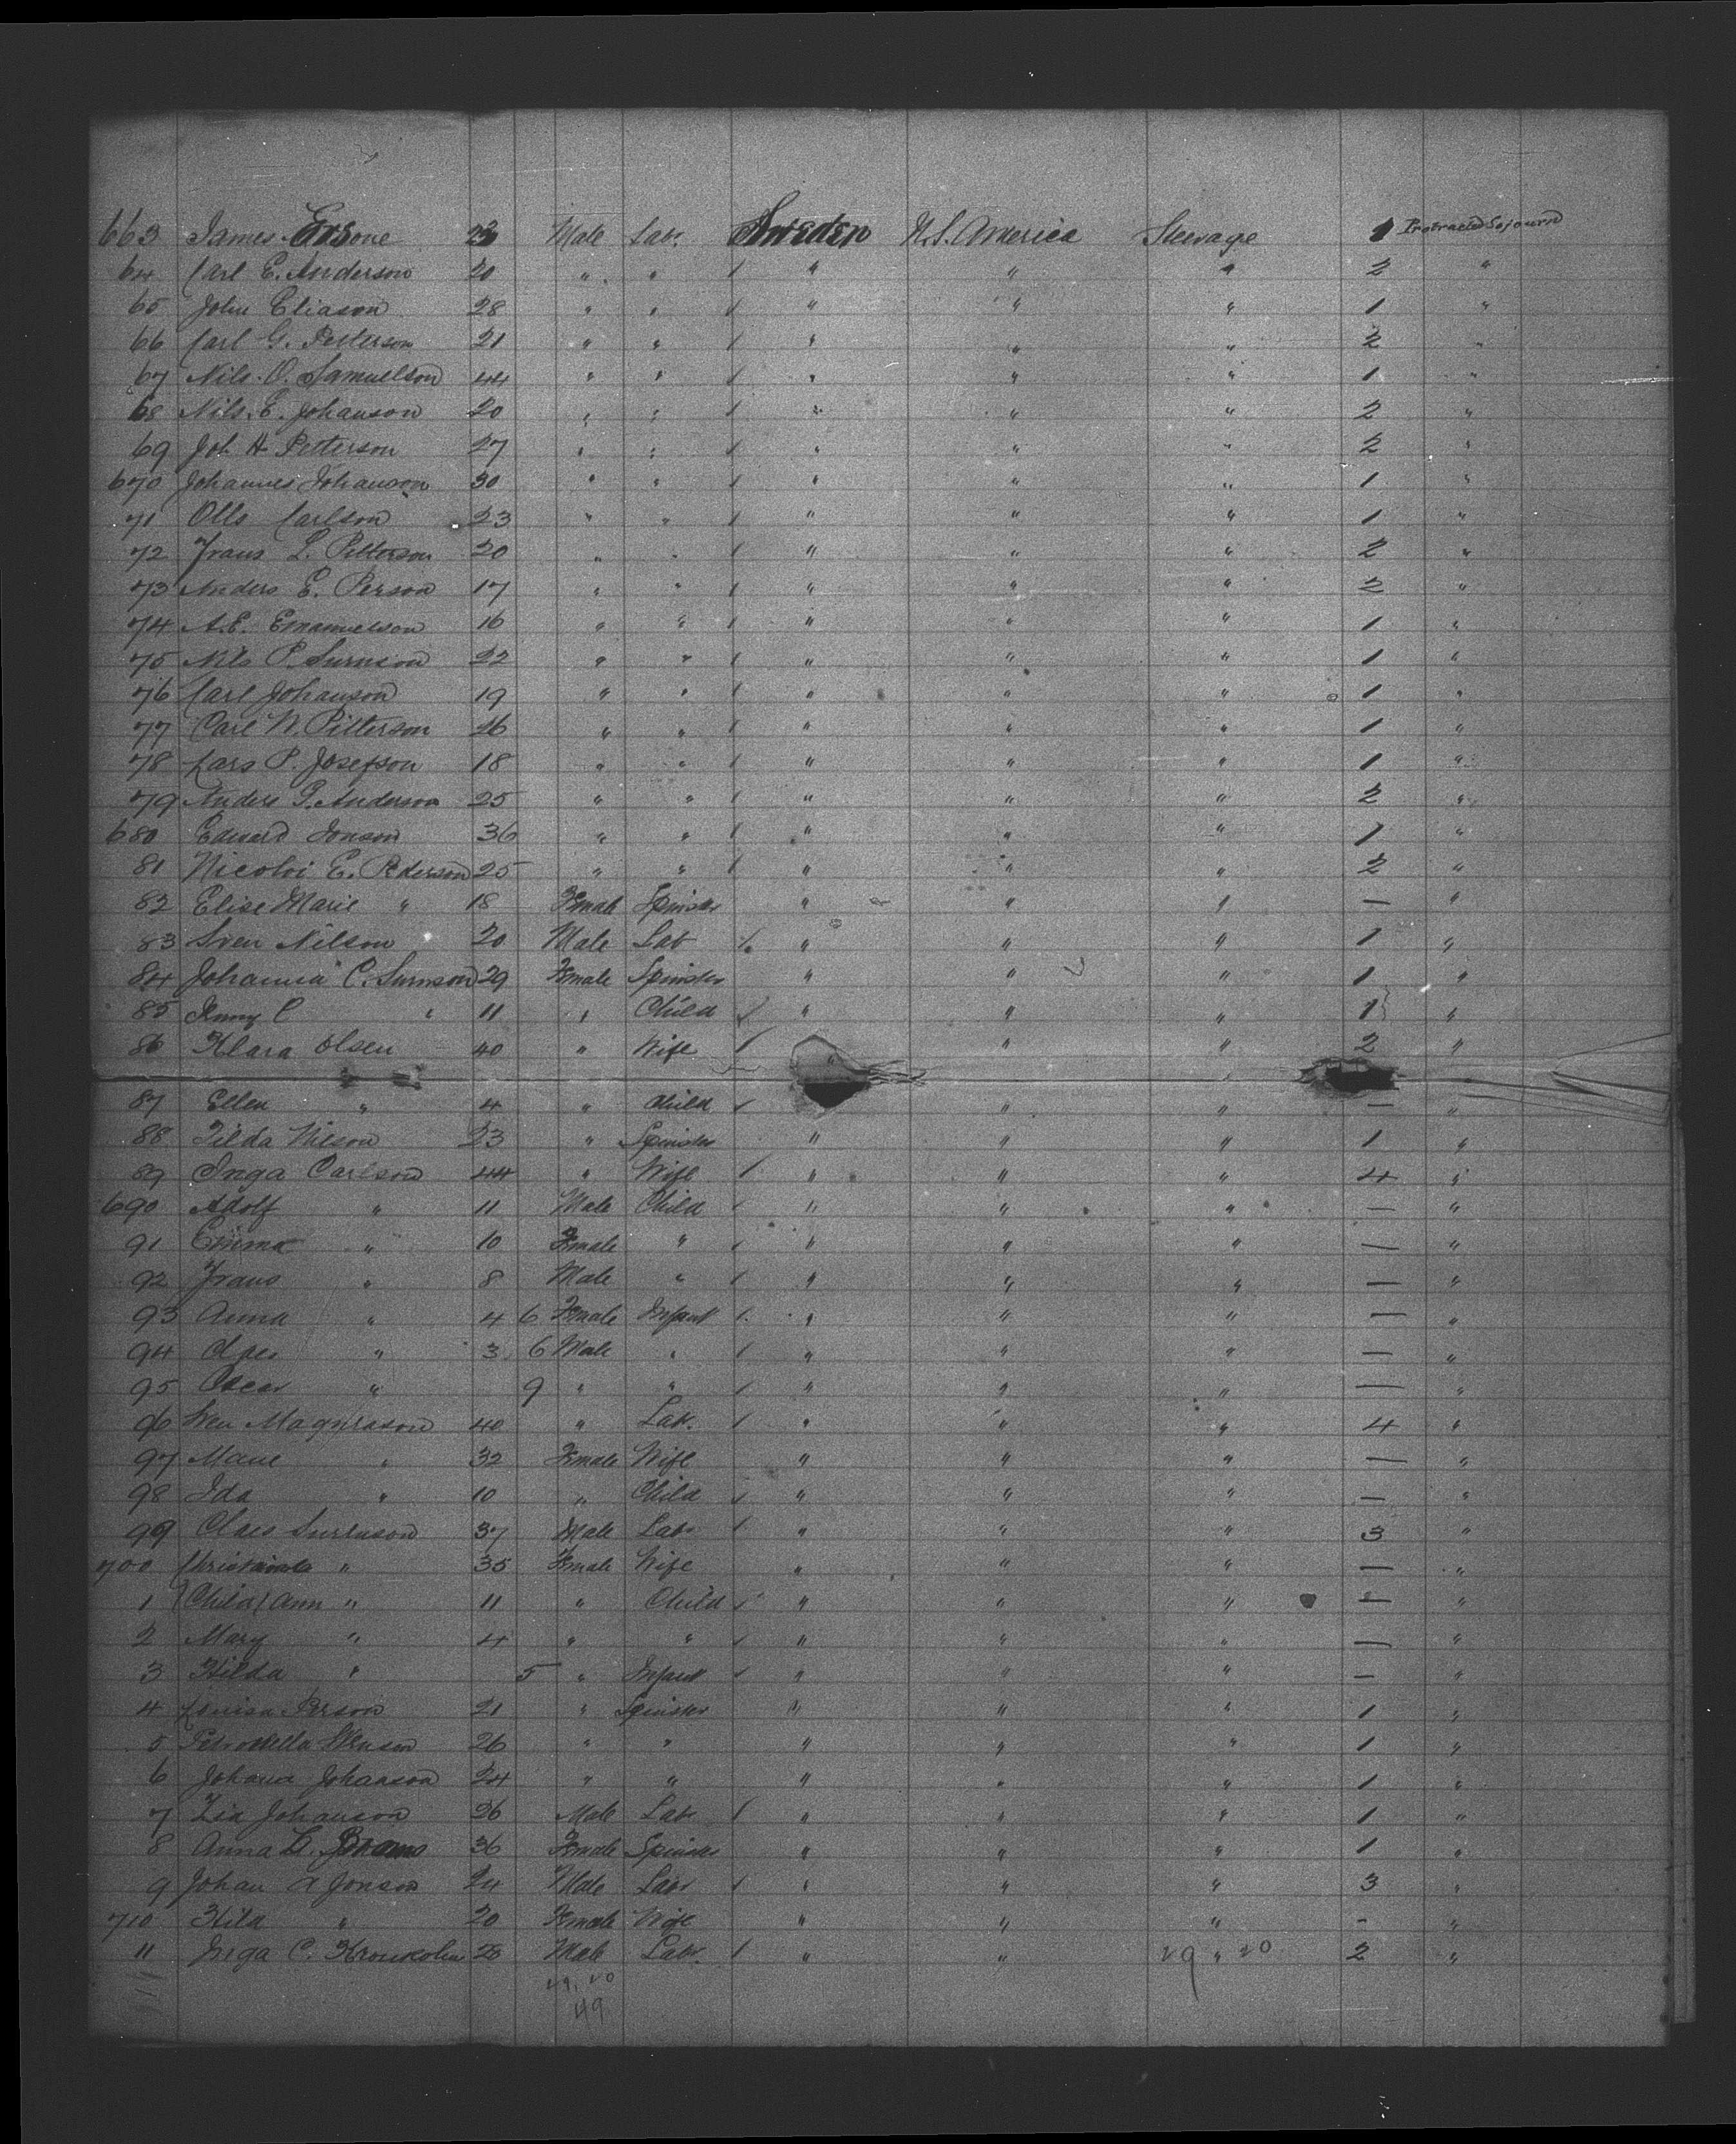 663 James 23 Male Lab. Sweden U.S. America Steerage 1 Protracted Sojourn
64 Carl E. Anderson 20 " " / " " " 2 "
65 John Eliason 28 " " / " " " 1 "
66 Carl G. Petterson 21 " " / " " " 2 "
67 Nils O. Samuelson 44 " " / " " " 1 "
68 Nils E. Johanson 20 " " / " " " 2 "
69 Joh. H. Petterson 27 " " / " " " 2 "
670 Johannes Johanson 30 " " / " " " 1 "
71 Olls Carlson 23 " " / " " " 1 "
72 Frans L. Petterson 20 " " / " " " 2 "
73 Anders E. Person 17 " " / " " " 2 "
74 A.E. Emanuelson 16 " " / " " " 1 "
75 Nils P. 22 " " / " " " 1 "
76 Carl Johanson 19 " " / " " " 1 "
77 Carl N. Pitterson 26 " " / " " " 1 "
78 Lars P. Josefson 18 " " / " " " 1 "
79 Anders P. Anderson 25 " " / " " " 2 "
680 Edward Jonson 36 " " / " " " 1 "
81 Nicoloi E. Pederson 25 " " / " " " 2 "
82 Elise Marie " 18 Female Spinster " " " — "
83 Sven Nilson 20 Male Lab / " " " 1 "
84 Johanna C. 29 Female Spinster " " " 1 "
85 Jenny C " 11 " Child / " " " 1 "
86 Klara Olsen 40 " Wife / " " " 2 "
87 Ellen " 4 " Child / " " — "
88 Tilda Nilson 23 " Spinster " " " 1 "
89 Inga Carlson 44 " Wife / " " " 4 "
690 Adolf " 11 Male Child / " " " — "
91 Emma " 10 Female " / " " " — "
92 Frans " 8 Male " / " " " — "
93 Anna " 4 6 Female Infant / " " " — "
94 Claes " 3 6 Male " / " " " — "
95 Oscar " 9 " " / " " " — "
96 Sven Magnusson 40 " Lab. / " " " 4 "
97 Marie " 32 Female Wife " " " — "
98 Ida " 10 " Child / " " " — "
99 Claes 37 Male Lab. / " " " 3 "
700 " 35 Female Wife " " " — "
1 Child Ann " 11 " Child / " " " — "
2 Mary " 4 " " / " " " — "
3 Hilda " 5 " Infant / " " " — "
4 Louisa Person 21 " Spinster " " " 1 "
5 Petronella 26 " " " " " 1 "
6 Johana Johanson 24 " " " " " 1 "
7 Johanson 26 Male Lab. / " " " 1 "
8 Anna 36 Female Spinster " " " 1 "
9 Johan A Jonson 24 Male Labr / " " " 3 "
710 Hild " 20 Female Wife " " " - "
11 Inga C. 20 Male Labr. / " " 29 " 20 2 "
29, 20
49